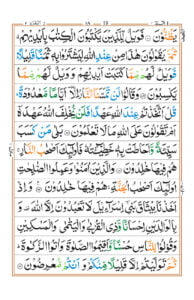 يَظُنُّوْنَ ۝ فَوَيْلٌ لِّلَّذِيْنَ يَكْتُبُوْنَ الْكِتٰبَ بِاَيْدِيْهِمْ
ثُمَّ يَقُوْلُوْنَ هٰذَا مِنْ عِنْدِ اللّٰهِ لِيَشْتَرُوْا بِهٖ ثَمَنًا قَلِيْلًا
فَوَيْلٌ لَّهُمْ مِّمَّا كَتَبَتْ اَيْدِيْهِمْ وَوَيْلٌ لَّهُمْ مِّمَّا
يَكْسِبُوْنَ ۝ وَقَالُوْا لَنْ تَمَسَّنَا النَّارُ اِلَّاۤ اَيَّامًا مَّعْدُوْدَةً
قُلْ اَتَّخَذْتُمْ عِنْدَ اللّٰهِ عَهْدًا فَلَنْ يُّخْلِفَ اللّٰهُ عَهْدَهٗ
اَمْ تَقُوْلُوْنَ عَلَى اللّٰهِ مَا لَا تَعْلَمُوْنَ ۝ بَلٰى مَنْ كَسَبَ
سَيِّئَةً وَّاَحَاطَتْ بِهٖ خَطِيْٓئَتُهٗ فَاُولٰٓئِكَ اَصْحٰبُ النَّارِ
هُمْ فِيْهَا خٰلِدُوْنَ ۝ وَالَّذِيْنَ اٰمَنُوْا وَعَمِلُوا الصّٰلِحٰتِ
اُولٰٓئِكَ اَصْحٰبُ الْجَنَّةِ هُمْ فِيْهَا خٰلِدُوْنَ ۝ وَاِذْ
اَخَذْنَا مِيْثَاقَ بَنِيْٓ اِسْرَآءِيْلَ لَا تَعْبُدُوْنَ اِلَّا اللّٰهَ
وَبِالْوَالِدَيْنِ اِحْسَانًا وَّذِي الْقُرْبٰى وَالْيَتٰمٰى وَالْمَسٰكِيْنِ
وَقُوْلُوْا لِلنَّاسِ حُسْنًا وَّاَقِيْمُوا الصَّلٰوةَ وَاٰتُوا الزَّكٰوةَ
ثُمَّ تَوَلَّيْتُمْ اِلَّا قَلِيْلًا مِّنْكُمْ وَاَنْتُمْ مُّعْرِضُوْنَ